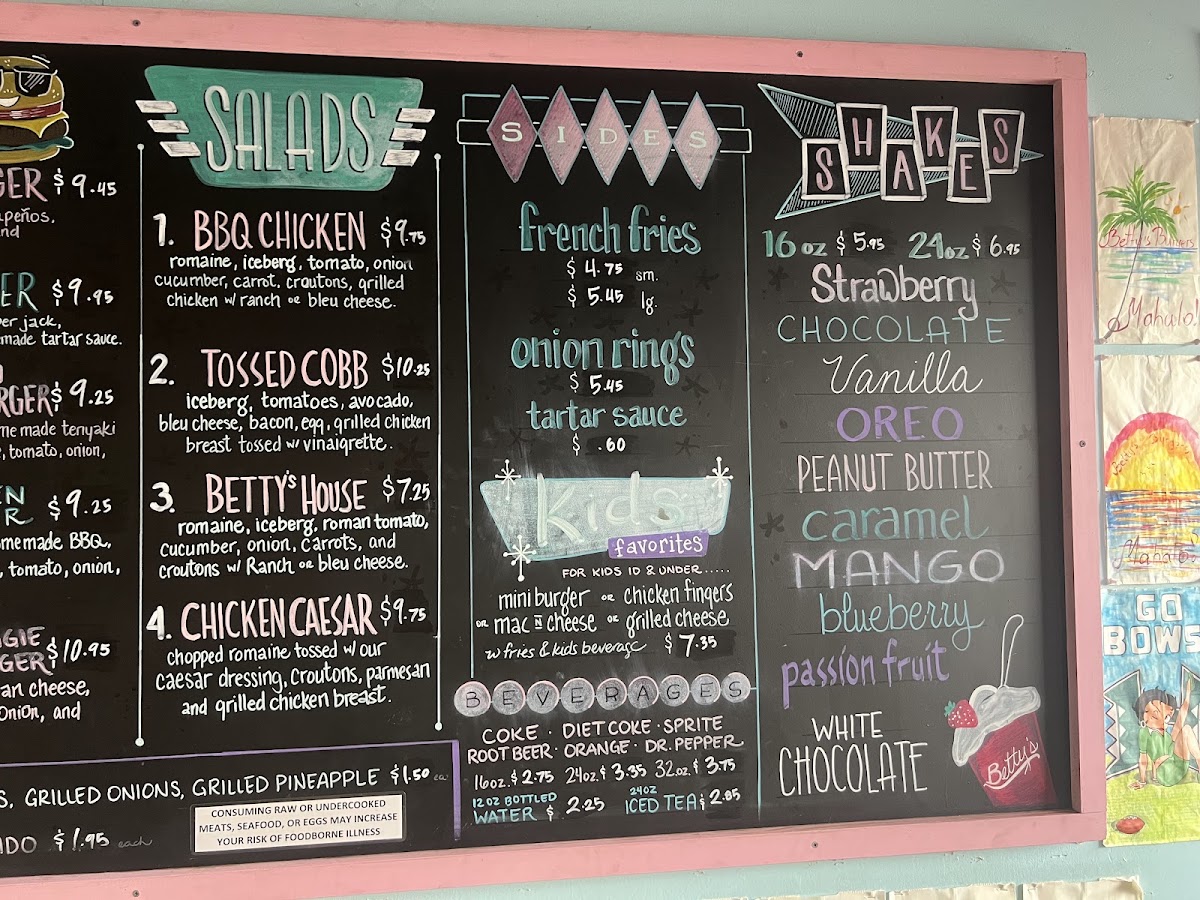 GER $9.45
apeños,
nd
ER $9.95
per jack,
made tartar sauce.
RGER $9.25
me made teriyaki
, tomato, onion,
EN
R $9.25
memade BBQ,
, tomato, onion,
GGIE
GER $10.95
an cheese,
Onion, and
S, GRILLED ONIONS, GRILLED PINEAPPLE $1.50 ea
ADO $1.95 each
CONSUMING RAW OR UNDERCOOKED
MEATS, SEAFOOD, OR EGGS MAY INCREASE
YOUR RISK OF FOODBORNE ILLNESS
SALADS
1. BBQ CHICKEN $9.75
romaine, iceberg, tomato, onion
cucumber, carrot, croutons, grilled
chicken w/ ranch or bleu cheese.
2. TOSSED COBB $10.25
iceberg, tomatoes, avocado,
bleu cheese, bacon, egg, grilled chicken
breast tossed w/ vinaigrette.
3. BETTY'S HOUSE $7.25
romaine, iceberg, roman tomato,
cucumber, onion, carrots, and
croutons w/ Ranch or bleu cheese.
4. CHICKEN CAESAR $9.75
chopped romaine tossed w/ our
caesar dressing, croutons, parmesan
and grilled chicken breast.
SIDES
french fries
$4.75 sm.
$5.45 lg.
onion rings
$5.45
tartar sauce
$.60
Kids
favorites
FOR KIDS 10 & UNDER.....
mini burger or chicken fingers
or mac n cheese or grilled cheese
w/ fries & kids beverage $7.35
BEVERAGES
COKE · DIET COKE · SPRITE
ROOT BEER · ORANGE · DR. PEPPER
16oz. $2.75 24oz. $3.35 32oz. $3.75
12 OZ BOTTLED
WATER $2.25
24OZ
ICED TEA $2.85
SHAKES
16 oz $5.95 24oz $6.95
Strawberry
CHOCOLATE
Vanilla
OREO
PEANUT BUTTER
caramel
MANGO
blueberry
passion fruit
WHITE
CHOCOLATE
Betty's
Betty's Burgers
Mahalo!
Mahalo
GO
BOWS